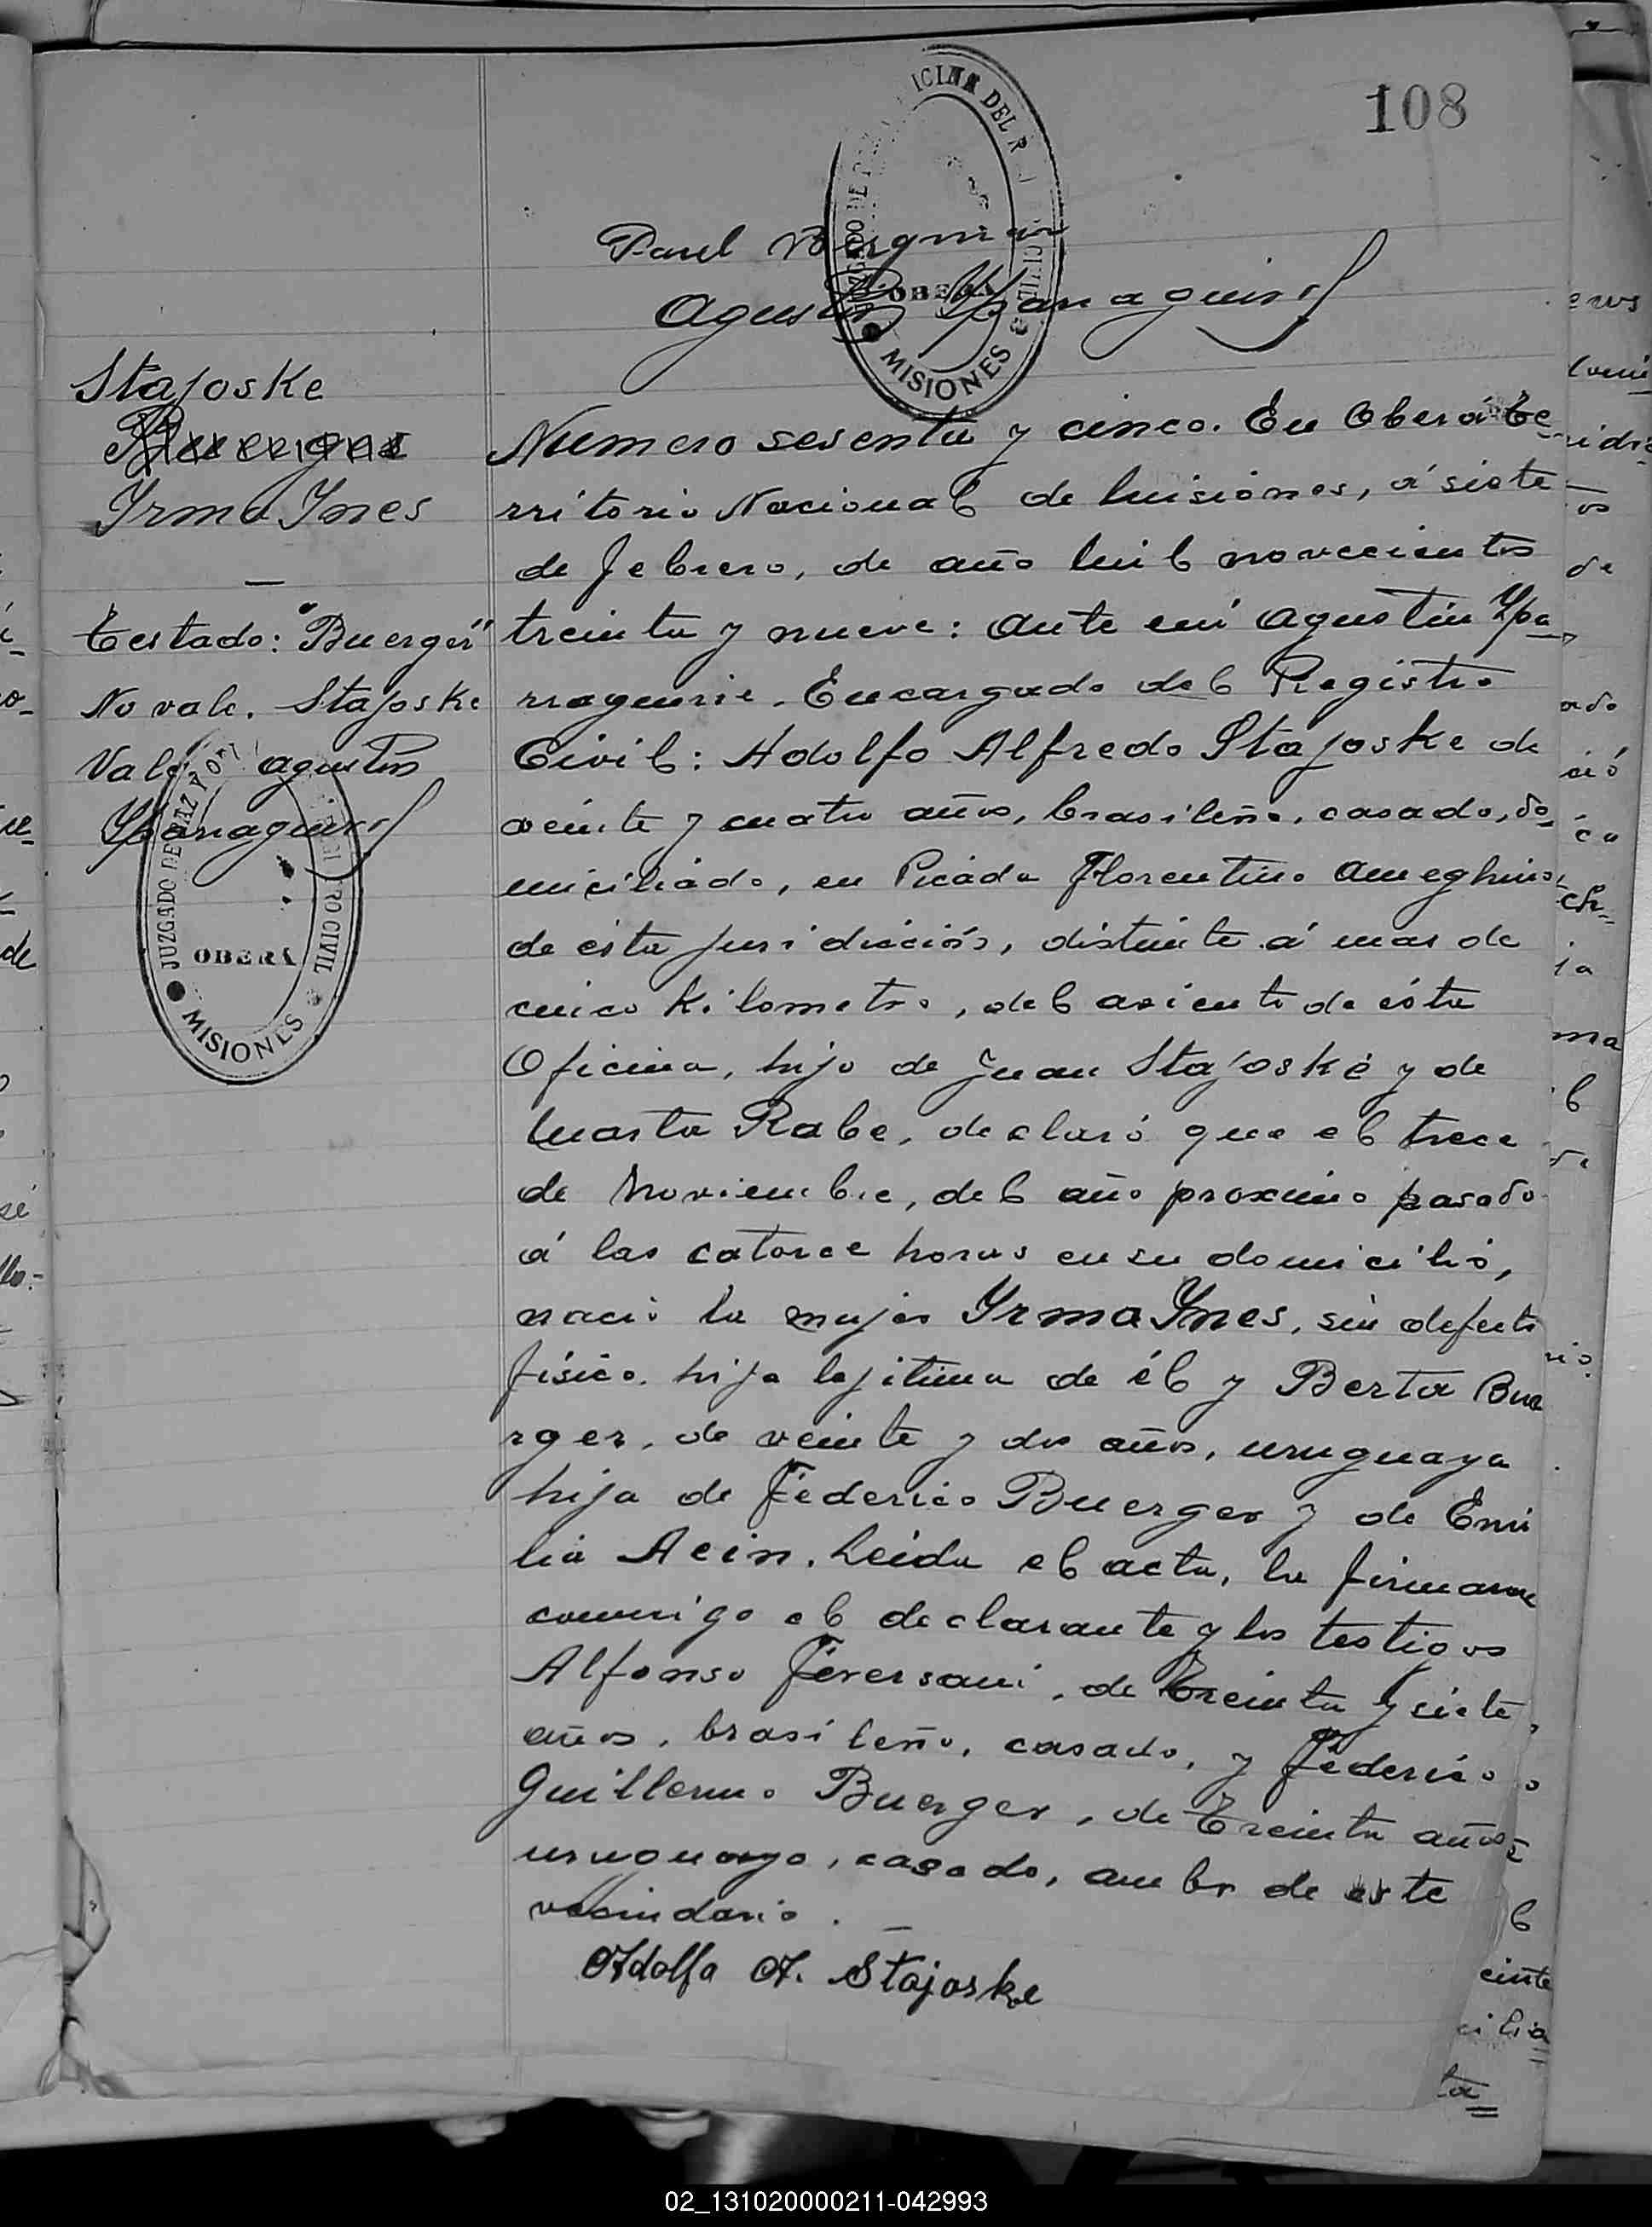 108
Paul Bergman
Agustin Yparraguirre
JUZGADO DE PAZ Y OFICINA DEL REGISTRO CIVIL
OBERÁ
MISIONES
Stajoske
Buerger
Yrma Ynes
Testado: "Buerger"
No vale. Stajoske
Vale Agustin
Yparraguirre
JUZGADO DE PAZ Y OFICINA DEL REGISTRO CIVIL
OBERÁ
MISIONES
Numero sesenta y cinco. En Oberá Te-
rritorio Nacional de Misiones, á siete
de febrero, de año mil novecientos
treinta y nueve: Ante mi Agustin Ypa-
rraguirre. Encargado del Registro
Civil: Adolfo Alfredo Stajoske de
veinte y cuatro años, brasileño, casado, do-
miciliado, en Picada Florentino Ameghino,
de ésta juridición, distante á mas de
cinco Kilometro, del asiento de ésta
Oficina, hijo de Juan Stajoske y de
Marta Rabe, declaró que el trece
de Noviembre, del año proximo pasado
á las catorce horas en su domicilio,
nació la mujer Yrma Ynes, sin defecto
físico. hija lejitima de él y Berta Bue
rger, de veinte y dos años, uruguaya
hija de Federico Buerger y de Emi
lia Acin. Leida el acta, la firmaron
conmigo el declarante y los testigos
Alfonso Feversani, de treinta y siete
años, brasileño, casado, y Federico
Guillermo Buerger, de treinta años
uruguayo, casado, ambos de este
vecindario.
Adolfo A. Stajoske
02_131020000211-042993